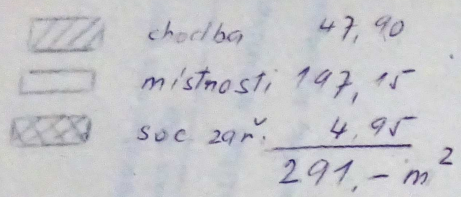 chodba 47,90
místnosti 197,15
soc. zař. 4,95
291,- m²